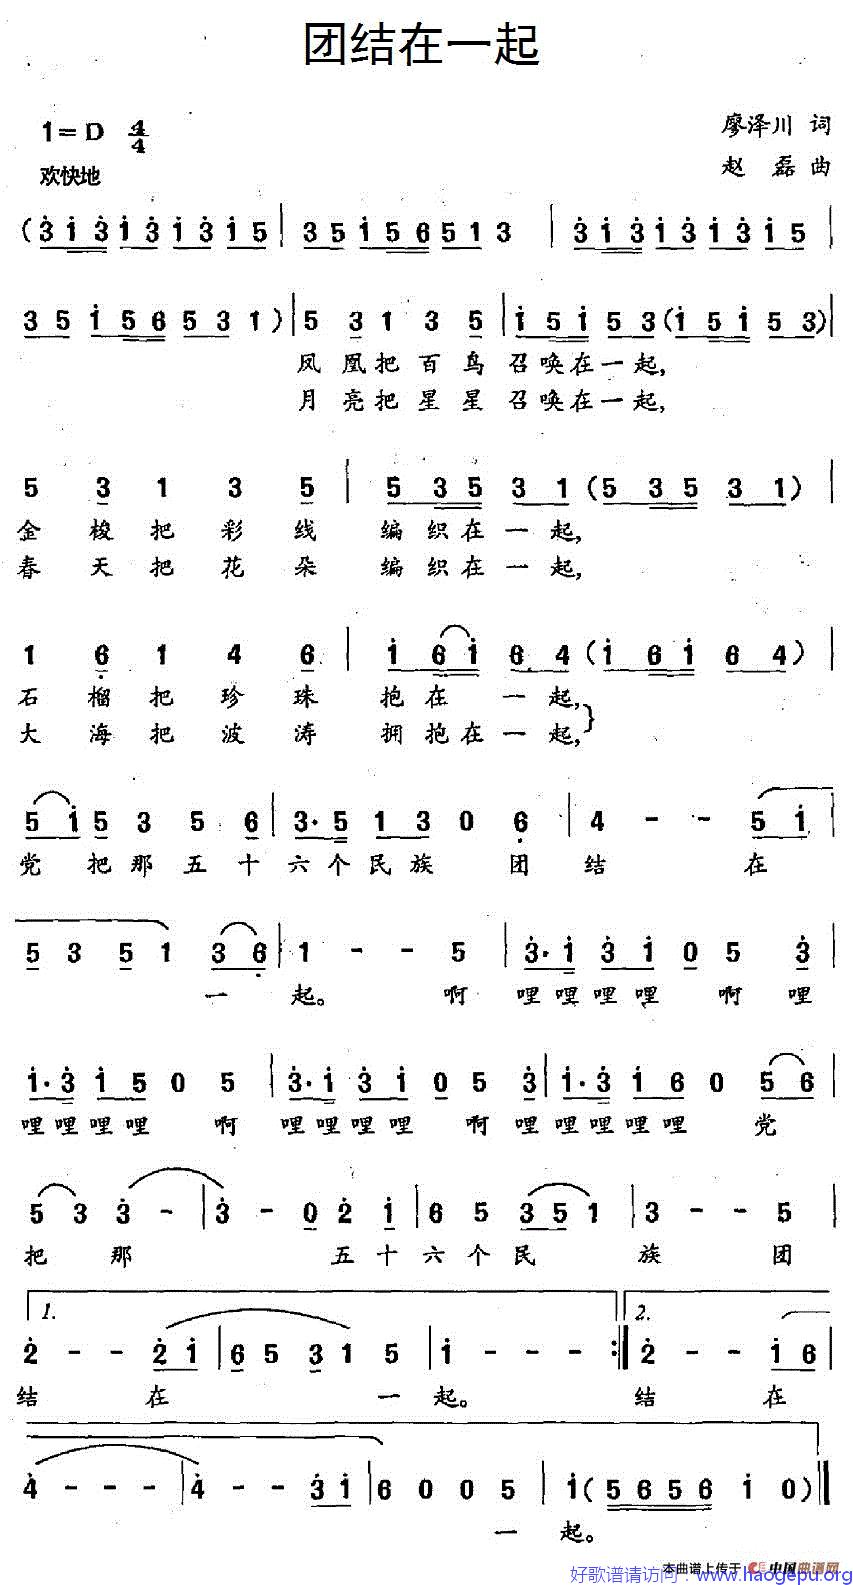 团结在一起
1=D 4/4
廖泽川 词
欢快地
赵 磊 曲
(3 i 3 i 3 i 3 i 5 | 3 5 i 5 6 5 1 3 | 3 i 3 i 3 i 3 i 5 |
3 5 i 5 6 5 3 1) | 5 3 1 3 5 | i 5 i 5 3 (i 5 i 5 3) |
凤凰把百鸟召唤在一起,
月亮把星星召唤在一起,
5 3 1 3 5 | 5 3 5 3 1 (5 3 5 3 1) |
金梭把彩线 编织在一起,
春天把花朵 编织在一起,
1 6 1 4 6 | i 6 i 6 4 (i 6 i 6 4) |
石榴把珍珠 抱在 一起,
大海把波涛 拥抱在一起,}
5 i 5 3 5 6 | 3·5 1 3 0 6 | 4 - - 5 i |
党 把那五十六个民族 团 结 在
5 3 5 1 3 6 | 1 - - 5 | 3·i 3 i 0 5 3 |
一 起。 啊 哩哩哩哩 啊 哩
i·3 i 5 0 5 | 3·i 3 i 0 5 3 | i·3 i 6 0 5 6 |
哩哩哩哩 啊 哩哩哩哩 啊哩哩哩哩哩 党
5 3 3 - | 3 - 0 2 i | 6 5 3 5 1 | 3 - - 5 |
把 那 五十六个民 族 团
1. 2.
2 - - 2 i | 6 5 3 1 5 | i - - - :| 2 - - i 6 |
结 在 一 起。 结 在
4 - - - | 4 - - 3 i | 6 0 0 5 | i (5 6 5 6 i 0) ‖
一 起。
本曲谱上传于 中国曲谱网
好歌谱请访问:www.haogepu.org